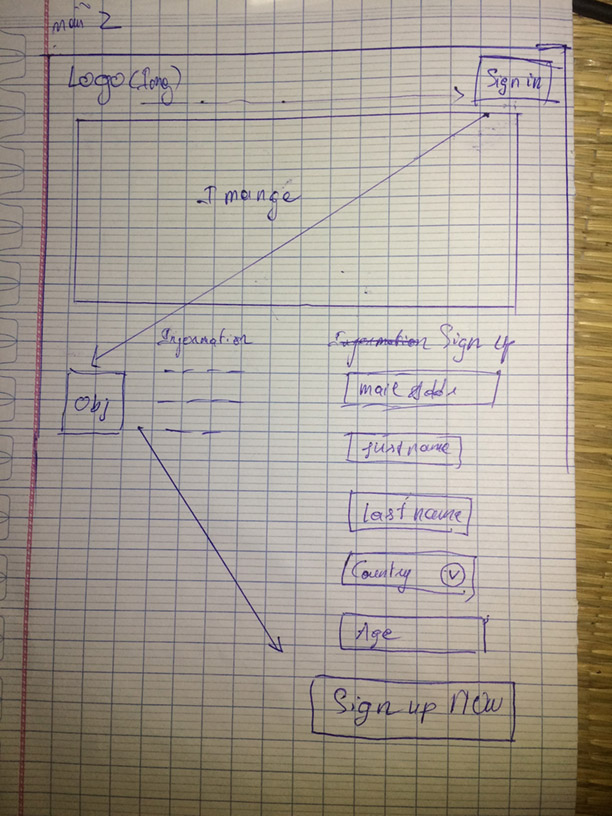 mẫu 2
Logo (long)
Sign in
Imange
Information
Information Sign up
Obj
mail Addr
first name
Last name
Country
Age
Sign up NOW